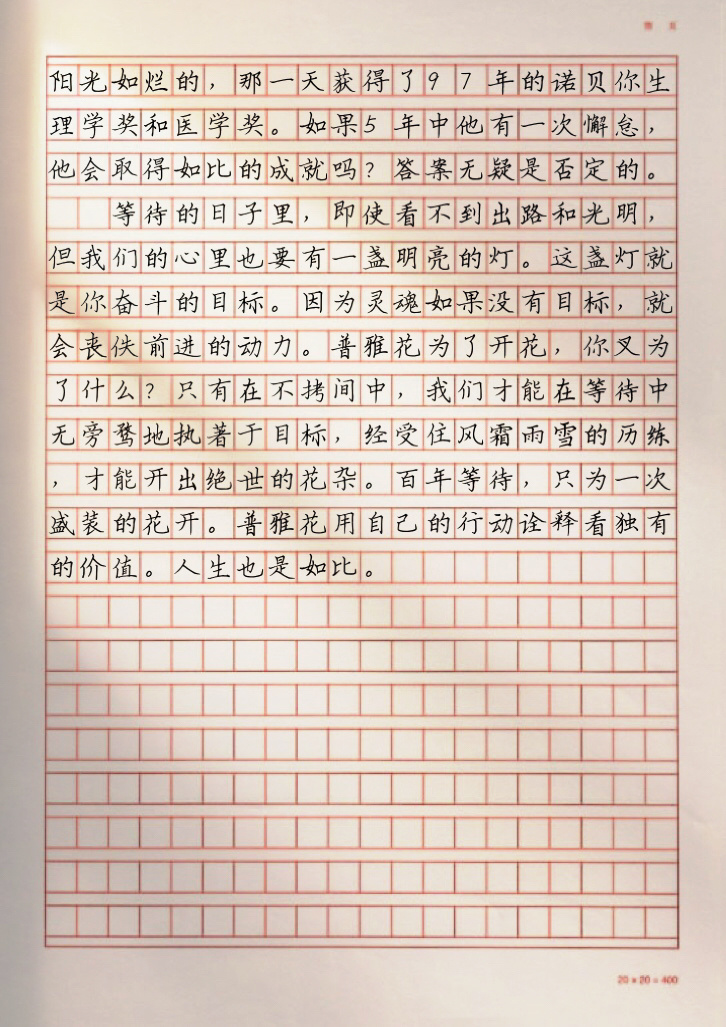 阳光如烂的，那一天获得了97年的诺贝你生
理学奖和医学奖。如果5年中他有一次懈怠，
他会取得如比的成就吗？答案无疑是否定的。
等待的日子里，即使看不到出路和光明，
但我们的心里也要有一盏明亮的灯。这盏灯就
是你奋斗的目标。因为灵魂如果没有目标，就
会丧佚前进的动力。普雅花为了开花，你叉为
了什么？只有在不拷间中，我们才能在等待中
无旁骛地执著于目标，经受住风霜雨雪的历练
，才能开出绝世的花杂。百年等待，只为一次
盛装的花开。普雅花用自己的行动诠释看独有
的价值。人生也是如比。
20×20=400